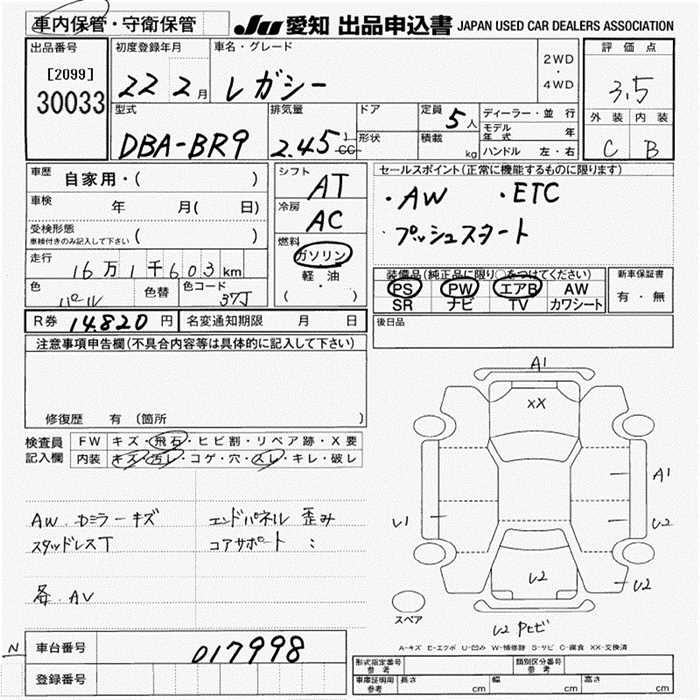 車内保管・守衛保管
JU 愛知 出品申込書 JAPAN USED CAR DEALERS ASSOCIATION
出品番号 初度登録年月 車名・グレード 2WD ・ 4WD 評価点
[2099]
30033 22 2月 レガシー 3.5
型式 排気量 ドア 定員 5人 ディーラー・並行 外装 内装
DBA-BR9 2.45 l cc 形状 積載 kg モデル年式 年 C B
ハンドル 左・右
車歴 自家用・( ) シフト AT セールスポイント(正常に機能するものに限ります)
車検 年 月(日) 冷房 AC ・AW ・ETC
受検形態 車検付きのみ記入して下さい ( ) ・プッシュスタート
走行 16万1千603km 燃料 ガソリン 軽・油 ( )
装備品(純正品に限り○をつけてください) 新車保証書
色 パール 色替 色コード 37J PS PW エアB AW 有・無
SR ナビ TV カワシート
R券 14,820円 名変通知期限 月 日 後日品
注意事項申告欄(不具合内容等は具体的に記入して下さい)
修復歴 有 (箇所 )
検査員 FW キズ・飛石・ヒビ割・リペア跡・X要
記入欄 内装 キズ・汚レ・コゲ・穴・スレ・キレ・破レ
A1
XX
A1
U1
U2
U2
U2
U2 Pセビ
AW.Dミラーキズ エンドパネル 歪み
スタッドレスT コアサポート :
AV
スペア
A-キズ E-エクボ U-凹み W-補修跡 S-サビ C-腐食 XX-交換済
N 車台番号 017998
登録番号
形式指定番号 参考 類別区分番号 参考
車庫証明用 参考 長さ cm 幅 cm 高さ cm